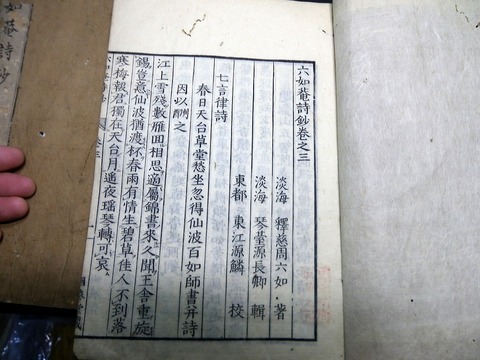 六如菴詩鈔卷之三
淡海 釋慈周六如 著
淡海 琴臺源長卿 輯
東都 東江源鱗 校
七言律詩
春日天台草堂愁坐忽得仙波百如師書并詩
因以酬之
江上雪殘數雁回相思適屬錦書來久聞王舍重旋
錫豈意仙波猶渡杯春雨有情生碧草佳人不到落
寒梅報君獨在天台月遙夜瑤琴轉可哀
如菴詩鈔